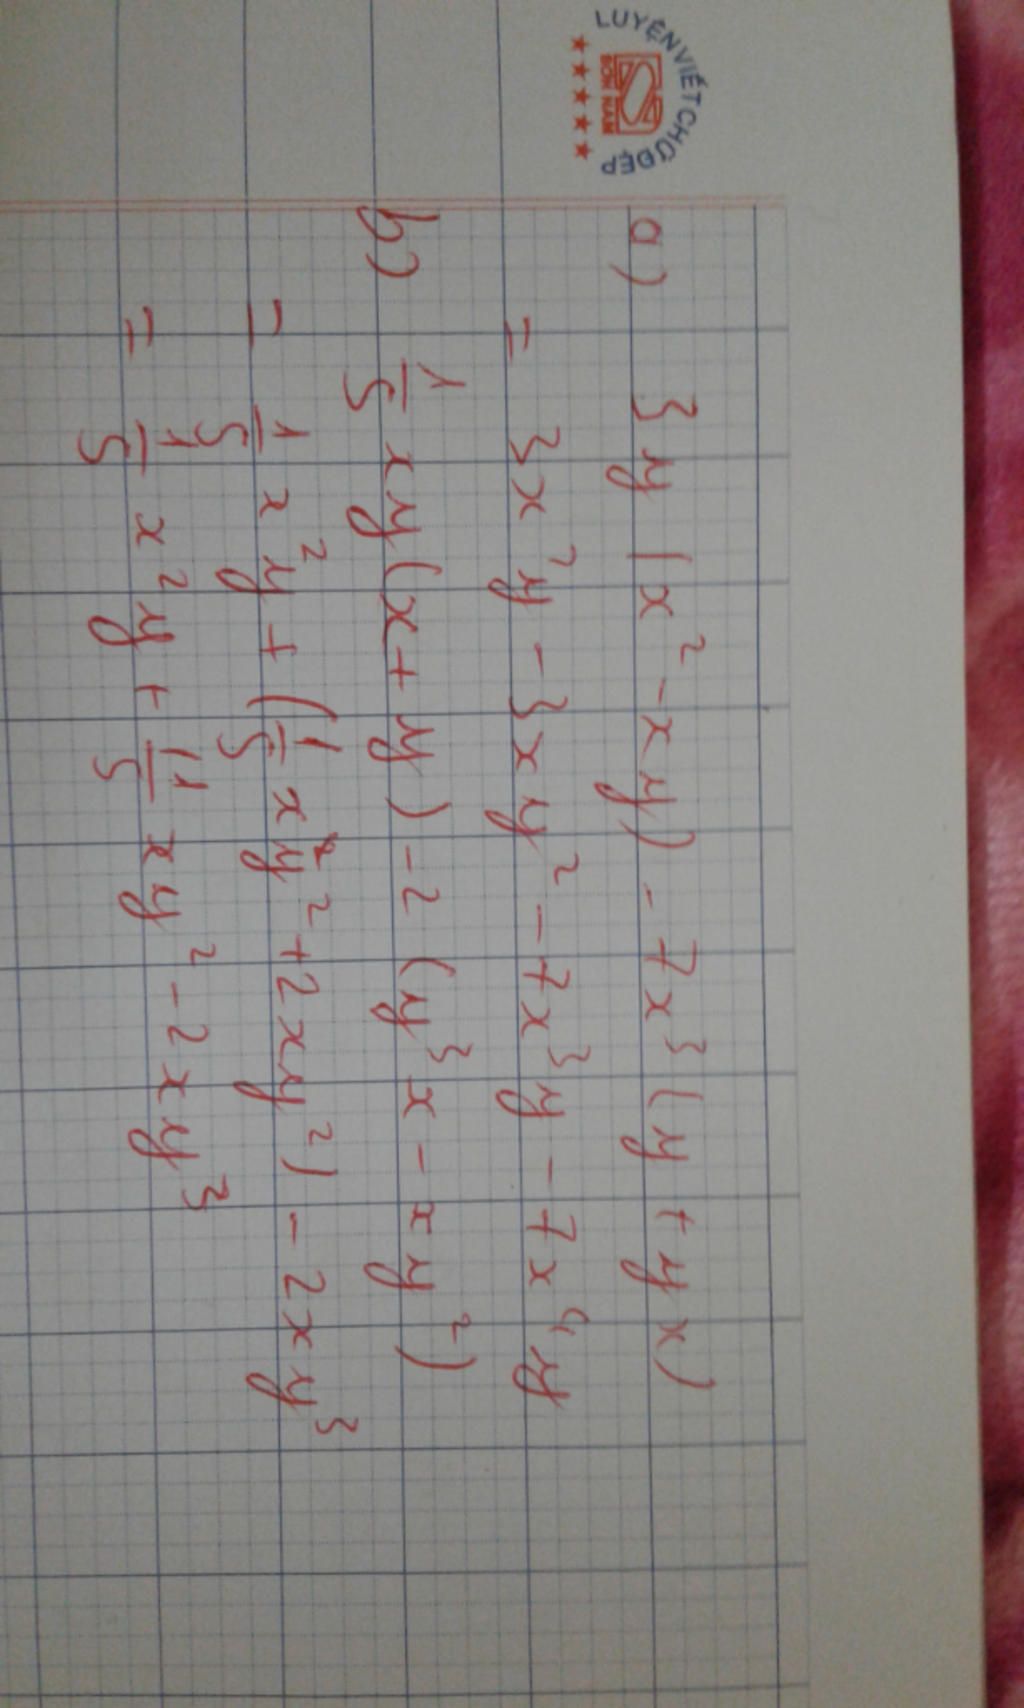 LUYỆN VIẾT CHỮ ĐẸP
SƠN NAM
a) 3y (x² - xy) - 7x³ (y + yx)
= 3x²y - 3xy² - 7x³y - 7x⁴y
b) 1/5 xy(x + y) - 2 (y³x - xy²)
= 1/5 x²y + (1/5 xy² + 2xy²) - 2xy³
= 1/5 x²y + 11/5 xy² - 2xy³